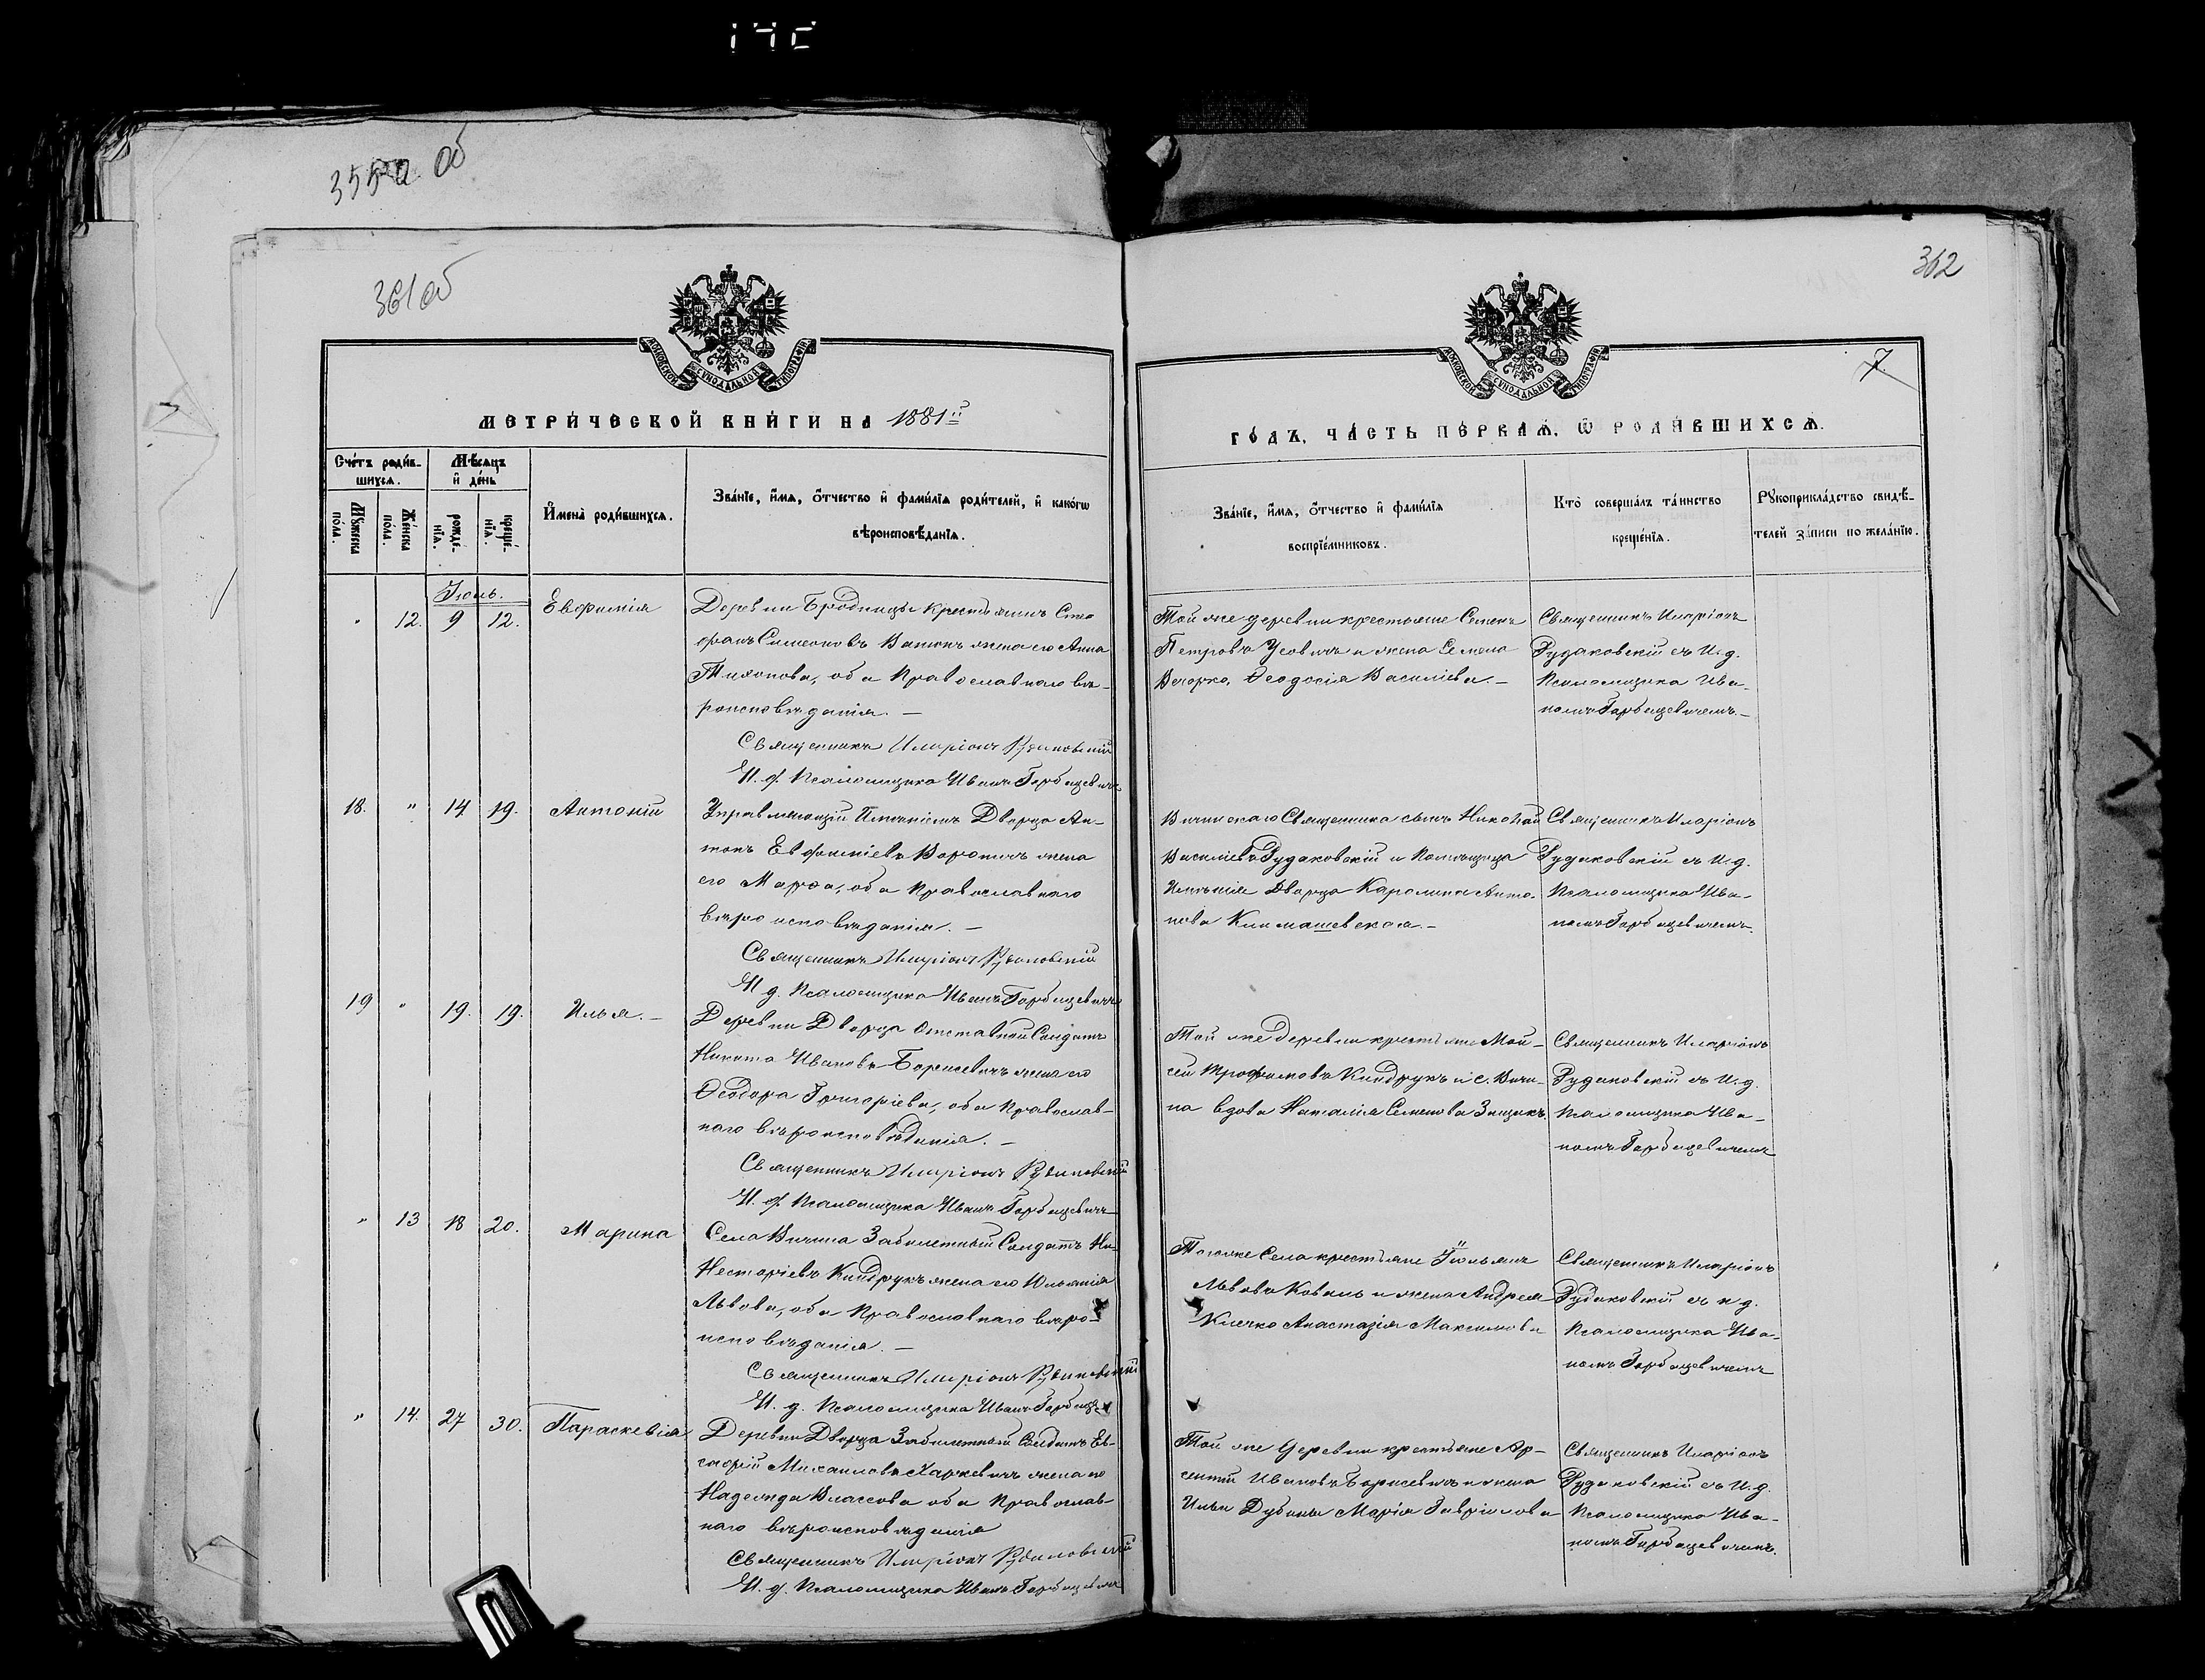 355 об
361 об
362
7
МЕТРИ́ЧЕСКОЙ КНИ́ГИ НА 1881й
ГО́ДЪ, ЧА́СТЬ ПЕ́РВАѦ, Ѡ РОДИ́ВШИХСѦ.
Сче́тъ роди́в-
шихсѧ.
Мꙋ́жеска по́ла.
Же́нска по́ла.
Мѣ́сѧцъ и де́нь
рожде́-нїѧ.
креще́-нїѧ.
И҆мена̀ роди́вшихсѧ.
Зва́нїе, и҆́мѧ, ѻ҆́тчество и҆ фами́лїѧ роди́телей, и҆ како́гѡ
вѣроисповѣ́данїѧ.
Зва́нїе, и҆́мѧ, ѻ҆́тчество и҆ фами́лїѧ
воспрїе́мниковъ.
Кто̀ соверша́лъ та́инство
креще́нїѧ.
Рꙋкоприкла́дство свидѣ́-
телей за́писи по жела́нїю.
" 12. 9 12. Евфимія
Деревни Бродницы крестьянинъ Сте
фанъ Симеоновъ жена его Анна
Тихонова, оба Православнаго вѣ-
роисповѣданія. —
Священникъ Иларіонъ Рудаковскій
И. д. Псаломщика Иванъ Горбацевичъ
Той же деревни крестьяне Семенъ
Петровъ Усовичъ и жена Семена
Вечорко, Ѳеодосія Васильева. —
Священникъ Иларіонъ
Рудаковскій съ И. д.
Псаломщика Ива-
номъ Горбацевичемъ. —
18. " 14 19. Антоній
Управляющій Имѣніемъ Дворца Ан-
тонъ Евфиміевъ жена
его Марѳа, оба Православнаго
вѣроисповѣданія. —
Священникъ Иларіонъ Рудаковскій
И. д. Псаломщика Иванъ Горбацевичъ
Вичинскаго Священника сынъ Николай
Васильевъ Рудаковскій и Помѣщица
Имѣнія Дворца Каролина Анто-
нова Климашевская. —
Священникъ Иларіонъ
Рудаковскій съ И. д.
Псаломщика Ива-
номъ Горбацевичемъ.
19 " 19. 19. Илья. —
Деревни Дворца Отставной Солдатъ
Никита Ивановъ Борисевичъ жена его
Ѳеодора Григорьева, оба Православ-
наго вѣроисповѣданія. —
Священникъ Иларіонъ Рудаковскій
И. д. Псаломщика Иванъ Горбацевичъ
Той же Деревни крестьяне Мой-
сей Трофимовъ Киндрукъ и с. Вичи-
на вдова Наталія Семенова
Священникъ Иларіонъ
Рудаковскій съ И. д.
Псаломщика Ива-
номъ Горбацевичемъ
" 13 18 20. Марина
Села Вичина Забилетный Солдатъ
Несторіевъ Киндрукъ жена его Юліанія
Львова, оба Православнаго вѣро-
исповѣданія. —
Священникъ Иларіонъ Рудаковскій
И. д. Псаломщика Иванъ Горбацев
Тогоже Села крестьяне
Львовъ Коваль и жена Андрея
Клечко Анастазія Максимова
Священникъ Иларіонъ
Рудаковскій съ и д.
Псаломщика Ива-
номъ Горбацевичемъ
" 14. 27 30. Параскевія
Деревни Дворца Забилетный Солдатъ Ев-
Михаиловъ Харкевичъ жена его
Надежда Власова оба Православ-
наго вѣроисповѣданія
Священникъ Иларіонъ Рудаковскій
И. д. Псаломщика Иванъ Горбацевичъ
Той же Деревни крестьяне Ар-
сентій Ивановъ Борисевичъ и жена
Ильи Дубины Марія Гавріилова
Священникъ Иларіонъ
Рудаковскій съ И. д.
Псаломщика Ива-
номъ Горбацевичемъ.